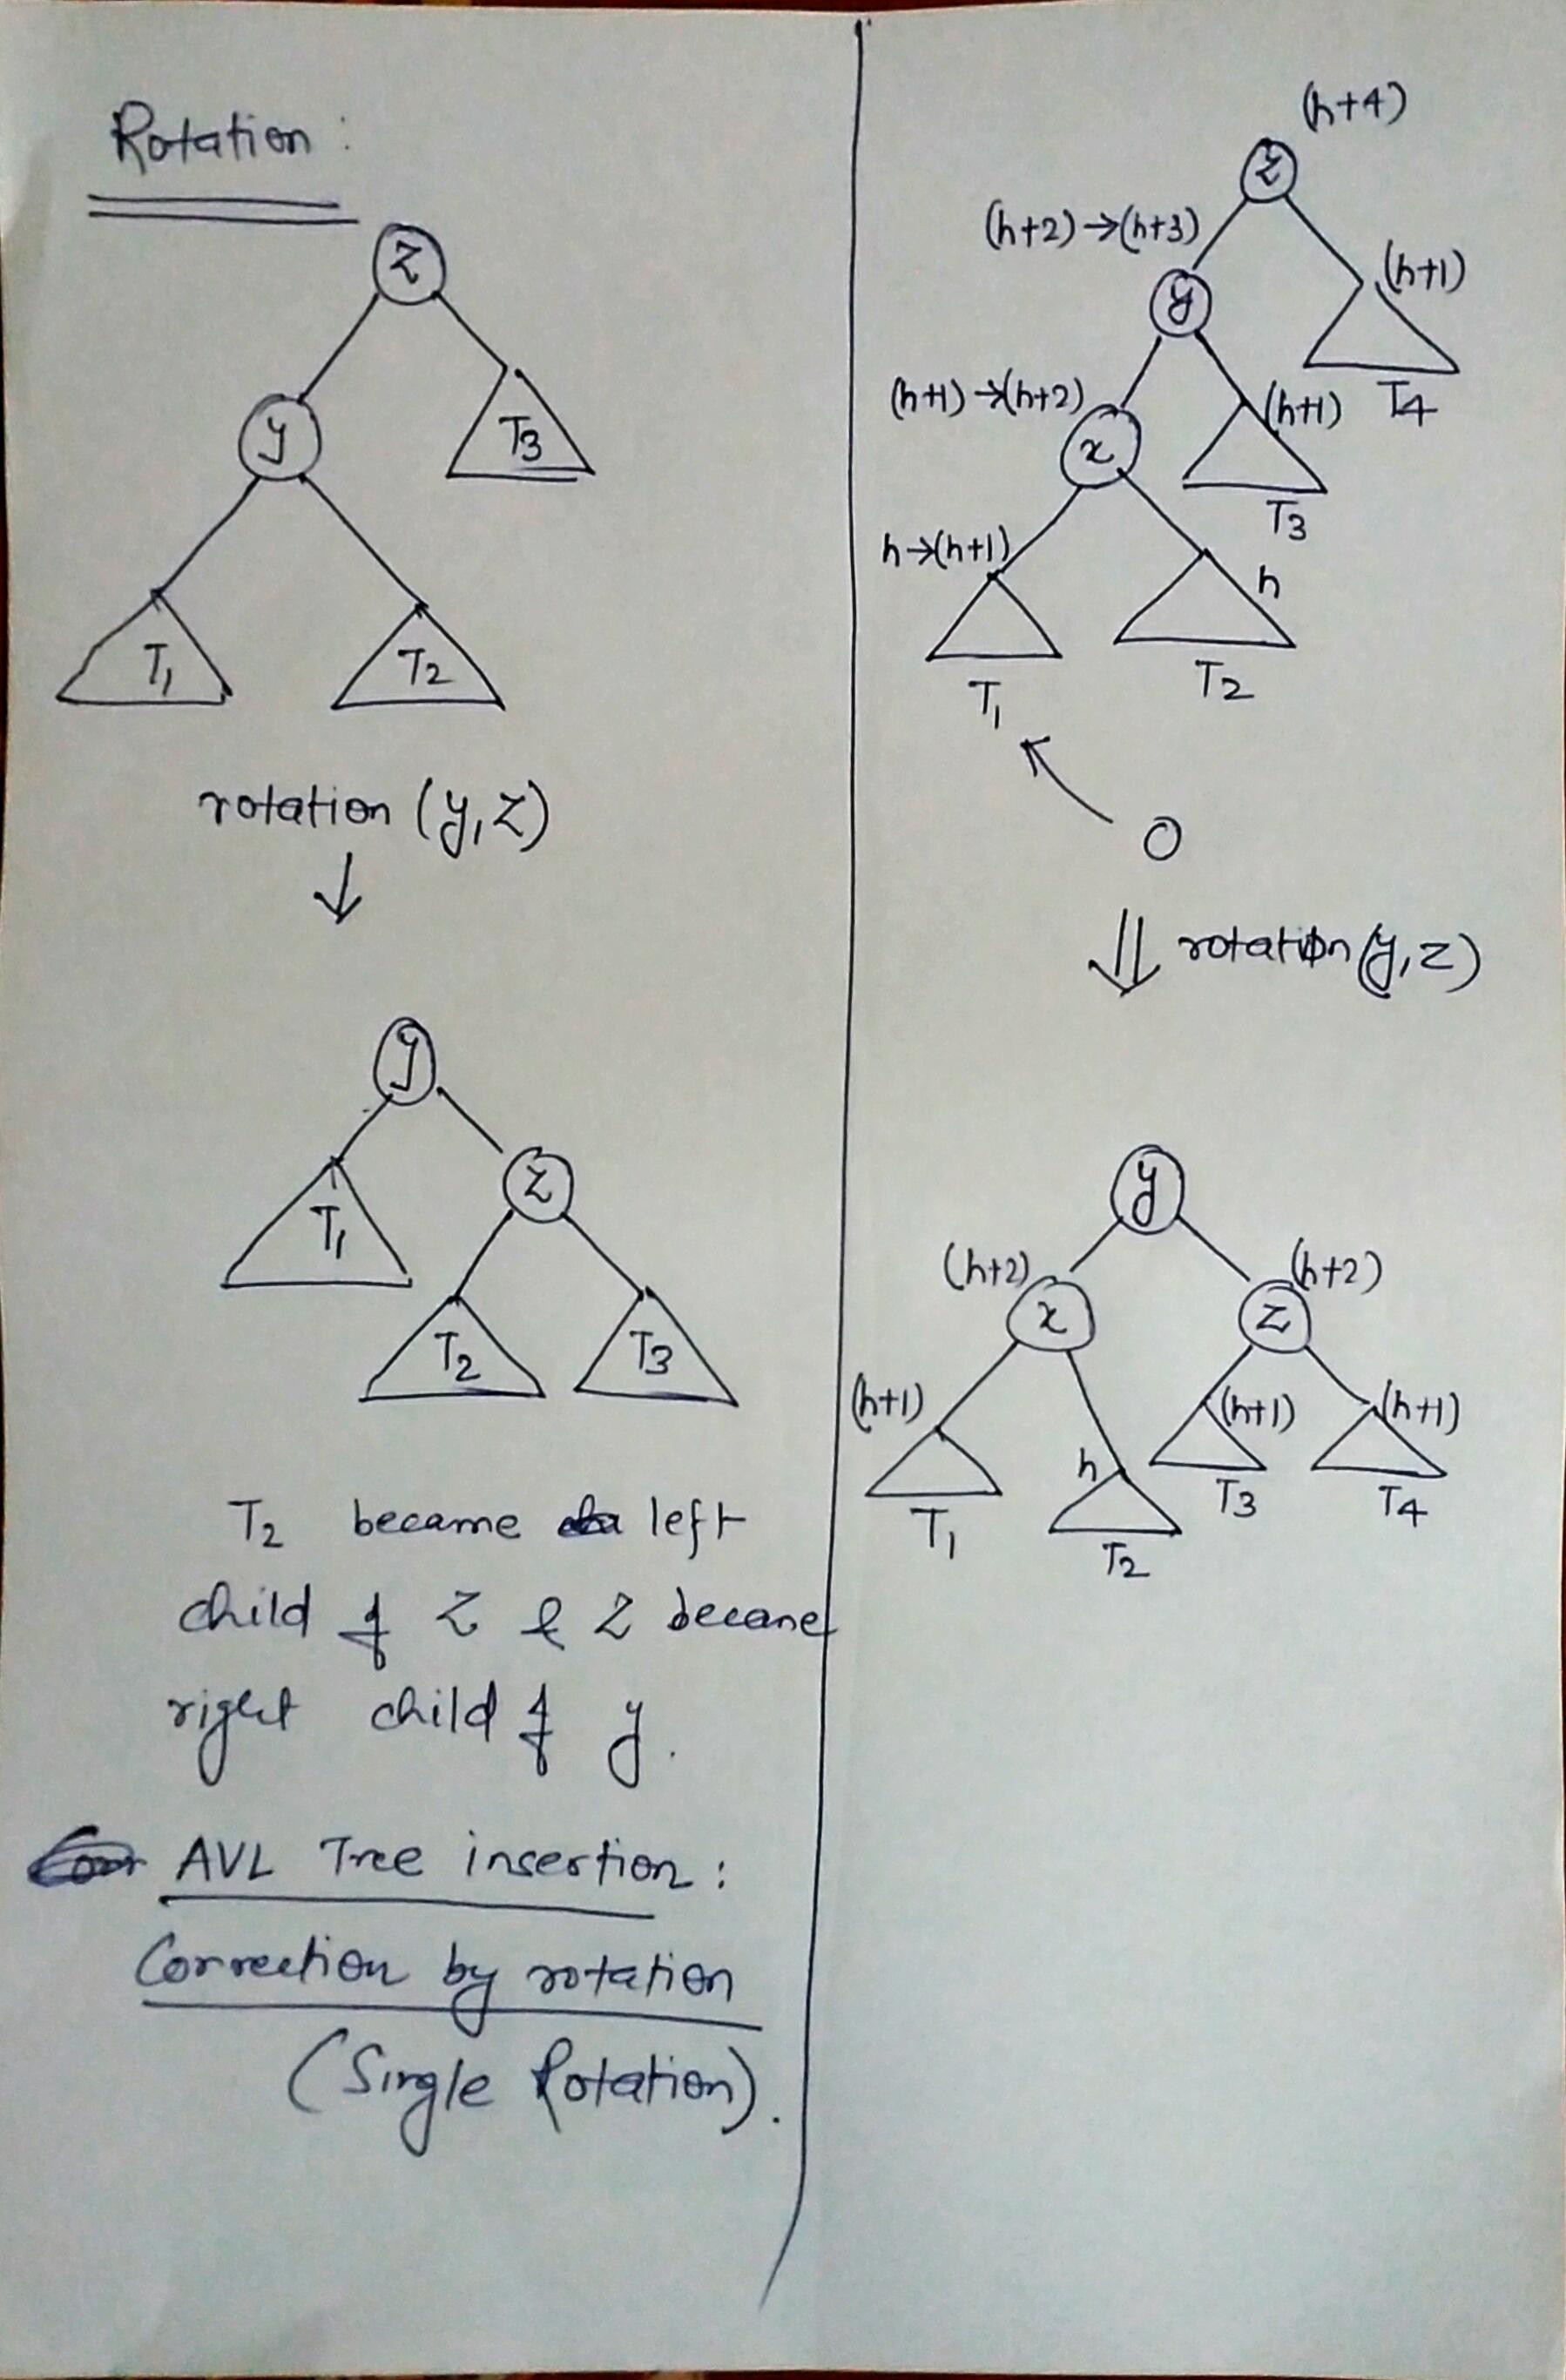 Rotation:
z
y
T3
T1
T2
rotation (y,z)
↓
y
T1
z
T2
T3
T2 became left
child of z & z became
right child of y.
AVL Tree insertion:
Correction by rotation
(Single Rotation).
(h+4)
z
(h+2)→(h+3)
(h+1)
y
(h+1)→(h+2)
(h+1)
T4
x
T3
h→(h+1)
h
T1
T2
⇓ rotation(y,z)
y
(h+2)
(h+2)
x
z
(h+1)
(h+1)
(h+1)
h
T3
T4
T1
T2